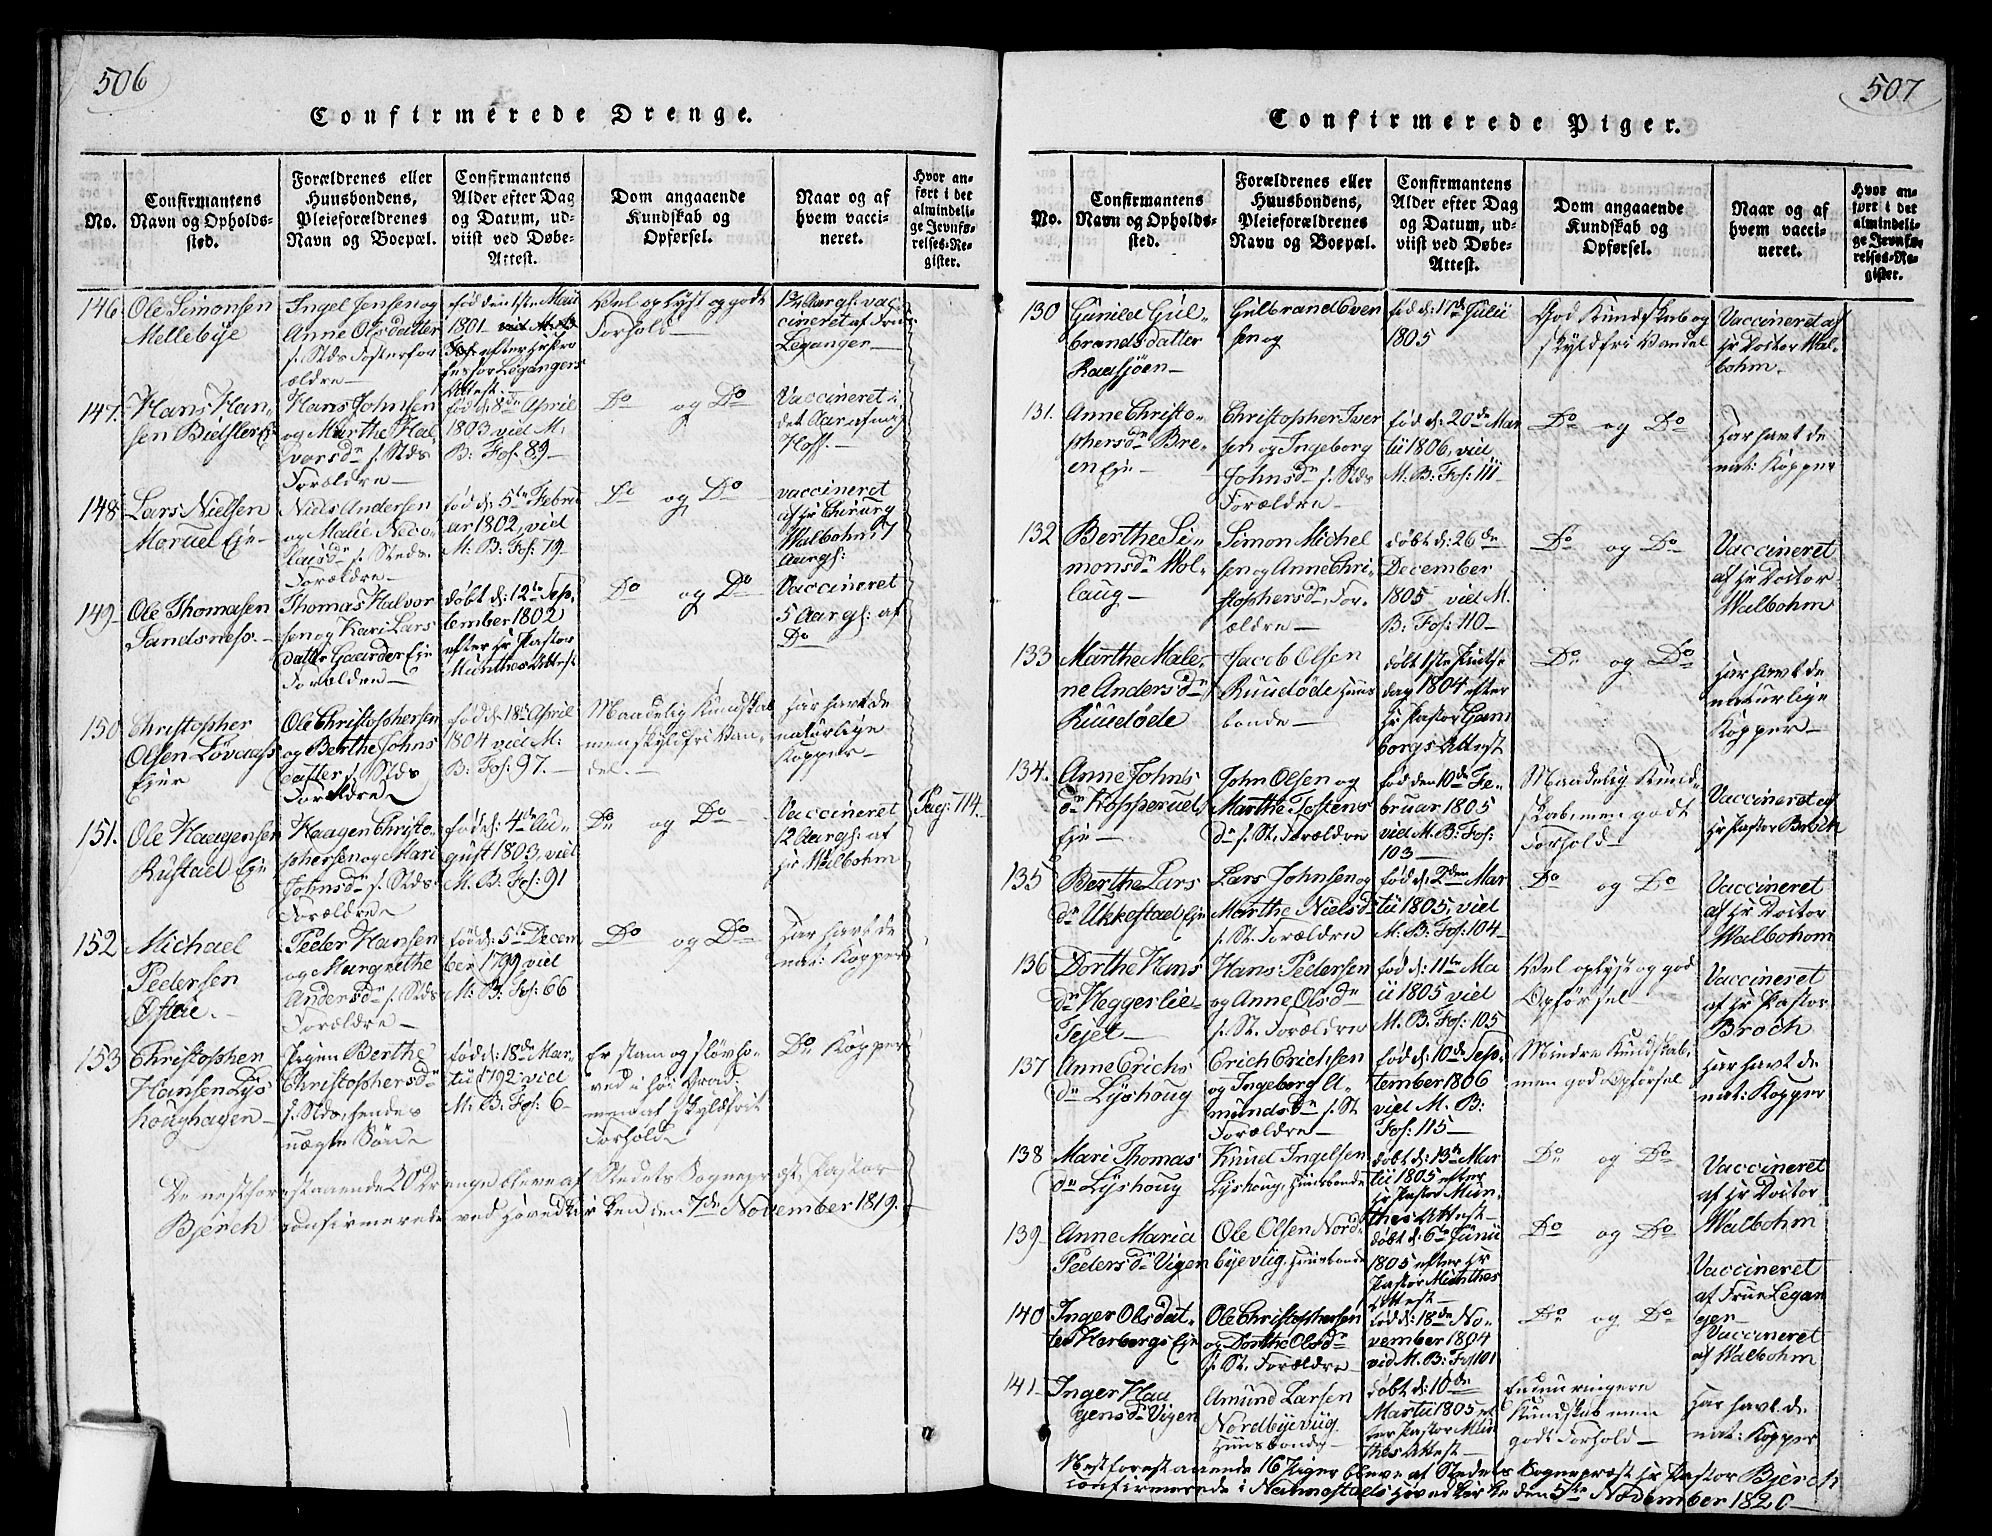 506
Confirmerede Drenge.
No.
Confirmantens Navn og Opholdssted.
Forældrenes eller Huusbondens, Pleieforældrenes Navn og Boepæl.
Confirmantens Alder efter Dag og Datum, udviist ved Døbe-Attest.
Dom angaaende Kundskab og Opførsel.
Naar og af hvem vaccineret.
Hvor anført i det almindelige Jevnførelses-Register.
146
Ole Simonsen
Mellebye
Ingel Jensen og
Anne Olsdatter
s. Stds Fosterfor
ældre
fød den 1ste Maii
1801
efter Hr Pro
fessor Leganger's
Attest
Vel oplyst og godt
Forhold
1½ Aar gl: vac
cineret af Frue
Leganger
147.
Hans Han
sen Eje
Hans Johnsen
og Marthe Hal
vorsdr s. Stds
Forældre
fød d: 8de April
1803 vid M.
B: Fol: 89
Do og Do
Vaccineret i
det Aar af
Hoff.
148
Lars Nielsen
Moruel Eje
Niels Andersen
og Malie Nico
laisdr s. Steds
Forældre
fød d: 5te Febru
ar 1802, vid
M: B: Fol: 79
Do og Do
vaccineret
af Hr Chirurg
Walbohm 7
Aar gl:
149
Ole Thomasen
Sandsness.
Thomas Halvor
sen og Kari Lars
datter Gaarder Eje
Forældre
døbt d: 12te Sep
tember 1802
efter Hr Pastor
Munthes Attest
Do og Do
Vaccineret
5 Aar gl: af
Do
150
Christopher
Olsen Løvaas
Ejer
Ole Christophersen
og Berthe Johns
datter s. Stds
Forældre
fød d: 18de April
1804 vid M:
B: Fol: 97.
Maadelig Kundskab
men skyldfri Van
del.
har havt de
naturlige
Kopper
151.
Ole Haagensen
Rustad Eje
Haagen Christo
phersen og Mari
Johnsdr s. Stds
Forældre
fød d: 4de Au
gust 1803, vid
M. B: Fol: 91
Do og Do
Vaccineret
12 Aar gl: af
Hr Walbohm
Pag: 114.
152
Michael
Pedersen
Østlie.
Peder Hansen
og Margrethe
Andersdr s. Stds
Forældre
fød d: 5te Decem
ber 1799 vid
M: B: Fol: 66
Do og Do
Har havt de
nat: Kopper
153
Christophen
Hansen Lys
houghagen
Pigen Berthe
Christophersdr
s. Stds, hendes
uægte Søn
fød d: 18de Mar
tii 1792 vid
M: B: Fol: 6
Er stam og sløvho
ved i høi Grad:
men af skyldfrit
Forhold
Do Kopper
De nestforestaaende 20 Drenge bleve af Stedets Sognepræst, Pastor
Bjerch confirmerede ved Hovedkirken den 7de November 1819.
507
Confirmerede Piger.
No.
Confirmantens Navn og Opholdssted.
Forældrenes eller Huusbondens, Pleieforældrenes Navn og Boepæl.
Confirmantens Alder efter Dag og Datum, udviist ved Døbe-Attest.
Dom angaaende Kundskab og Opførsel.
Naar og af hvem vaccineret.
Hvor anført i det almindelige Jevnførelses-Register.
130
Gunild Gul
brandsdatter
Raasjøen
Gulbrand Even
sen og
fød d: 17de Julii
1805
God Kundskab og
skyldfri Vandel
Vaccineret af
Hr Doctor Wal
bohm.
131.
Anne Christo
phersdr Bre
en Eje
Christopher Iver
sen og Ingeborg
Johnsdr s. Stds
Forældre
fød d: 20de Mar
tii 1806, vid
M: B: Fol: 111
Do og Do
Har havt de
nat: Kopper
132
Berthe Si
monsdr Mol
laug
Simon Michel
sen og Anne Chri
stophersdr, For
ældre
døbt d: 26de
December
1805 vid M.
B: Fol: 110
Do og Do
Vaccineret
af Hr Doctor
Walbohm
133
Marthe Male
ne Andersdr
Ruudøde
Jacob Olsen
Ruudøde Huus
bonde
døbt 1ste Pintse
dag 1804 efter
Hr Pastor Gam
borgs Attest
Do og Do
Har havt de
naturlige
Kopper
134.
Anne Johns
dr Kopperud
Eje
John Olsen og
Marthe Tostens
dr s. St. Forældre
fød den 10de Fe
bruar 1805
vid M. B: Fol:
103
Maadelig Kund
skab, men godt
Forhold
Vaccineret af
Hr Pastor Broch
135
Berthe Lars
dr Ukkestad Eje
Lars Johnsen og
Marthe Nielsdr
s. St. Forældre
fød d: 2den Mar
tii 1805, vid
M: B: Fol: 104
Do og Do
Vaccineret
af Hr Doctor
Walbohom
136
Dorthe Hans
dr Heggerlie
Tejet
Hans Pedersen
og Anne Olsdr
s. St. Forældre
fød d: 11te Ma
ii 1805 vid
M. B: Fol: 105
Vel oplyst og god
Opførsel
Vaccineret
af Hr Pastor
Broch
137
Anne Erichs
dr Lyshoug
Erich Erichsen
og Ingeborg A
mundsdr s. St
Forældre
fød d: 10de Sep
tember 1806
vid M. B:
Fol: 115
Mindre Kundskab,
men god Opførsel
Har havt de
nat: Kopper
138
Mari Thomas
dr Lyshoug
Knud Ingelsen
Lyshoug, Huusbonde
døbt d: 13de Mar
tii 1805 efter
Hr Pastor Mun
thes Attest
Do og Do
Vaccineret
af Hr Doctor
Walbohm
139
Anne Maria
Pedersdr Vigen
Ole Olsen Nord
byevug, Huusbonde
døbt d: 6te Junii
1805 efter Hr
Pastor Munthes
Attest
Do og Do
Vaccineret
af Frue Legan
ger
140
Inger Olsdat
ter Herbergs Eje
Ole Christophersen
og Dorthe Olsdr
s. St. Forældre
fød d: 18de No
vember 1804
vid M. B: Fol 101
Do og Do
Vaccineret
af Walbohm
141
Inger Haa
gensdr Vigen
Amund Larsen
Nordbyevug
Huusbonde
døbt d: 10de
Martii 1805 ef
ter Pastor Mun
thes Attest
Endnu ringere
Kundskab men
godt Forhold
Har havt de
nat: Kopper
Nestforestaaende 16 Piger bleve af Stedets Sognepræst Hr Pastor Bjerch
confirmerede i Nannestads Hovedkirke den 5te November 1820